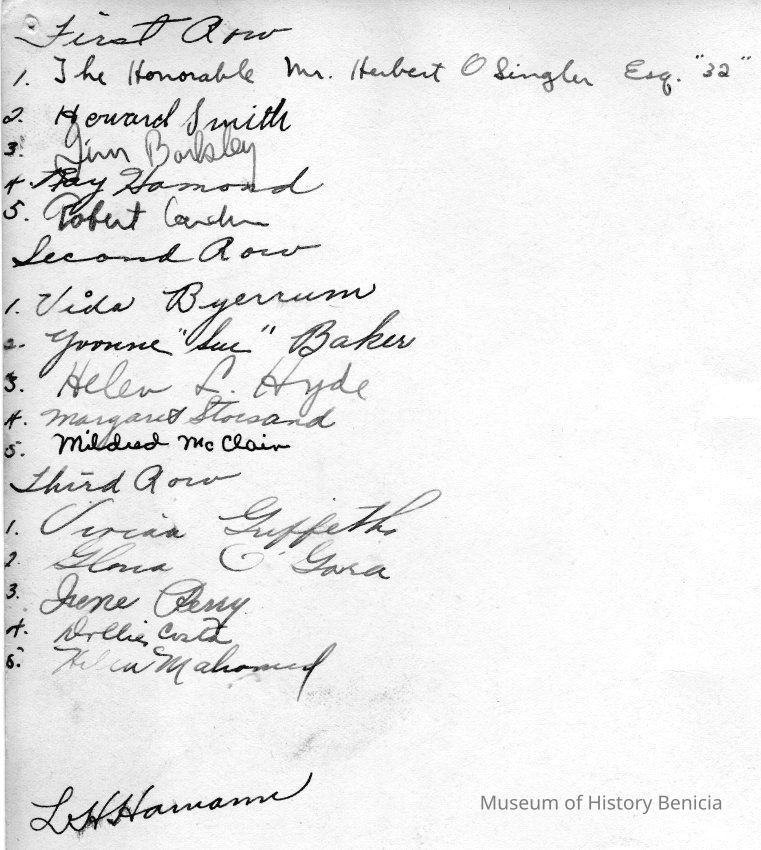 First Row
1. The Honorable Mr. Herbert O Singler Esq. "32"
2. Howard Smith
3. Jim Barkley
4. Ray Hamond
5. Robert
Second Row
1. Vida Byerrum
2. Yvonne "Sue" Baker
3. Helen L. Hyde
4. Margaret Storsand
5. Mildred McClain
Third Row
1. Vivian Griffeths
2. Gloria O'Gara
3. Irene Perry
4. Dollie Costa
5. Helen Mahomed
L H Hamann
Museum of History Benicia